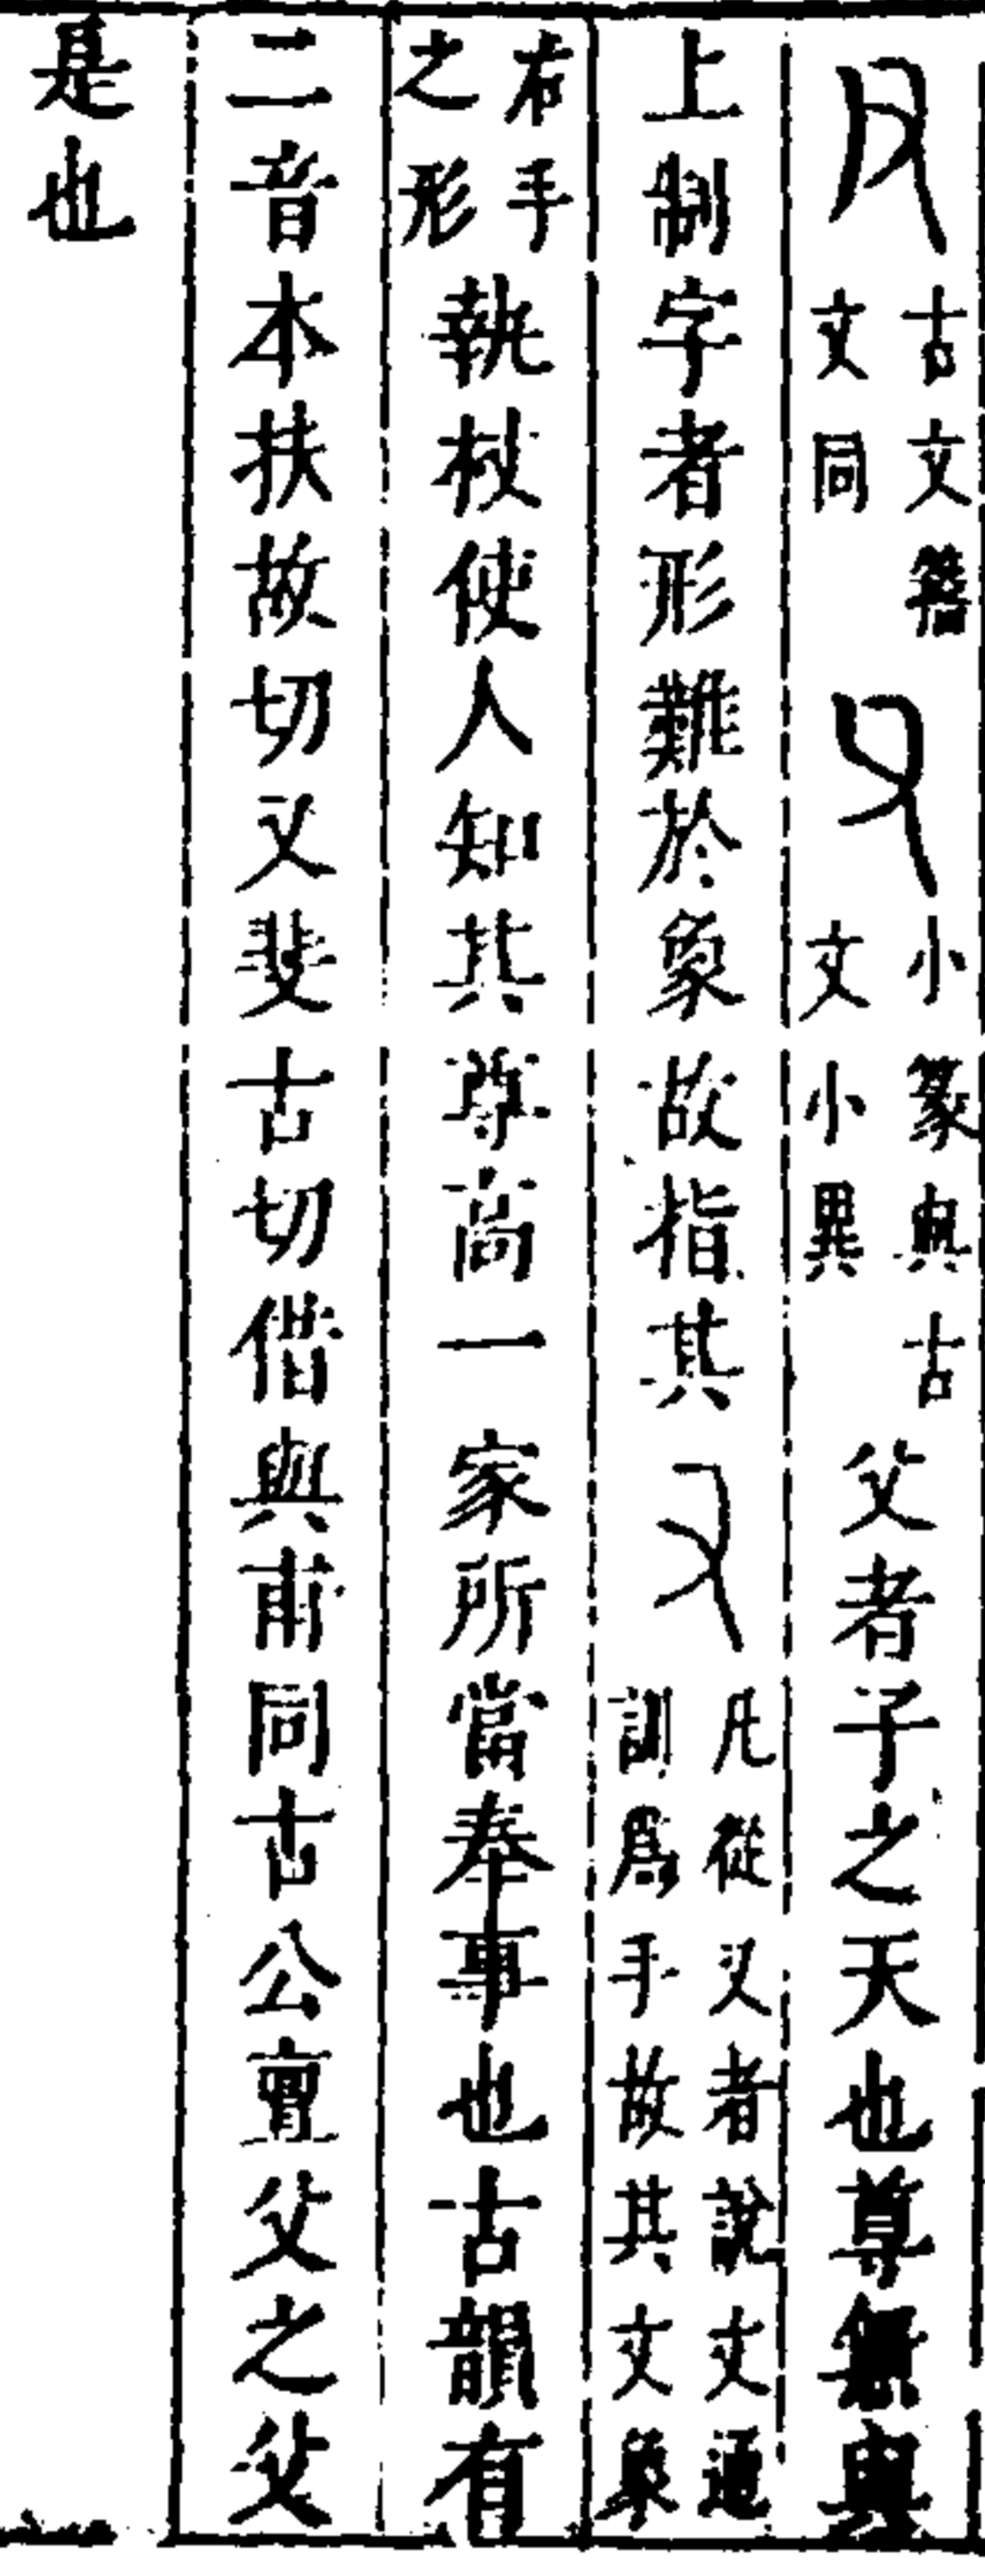 古文籀文同小篆與古文小異父者子之天也尊無與
上制字者形難於象故指其凡從又者說文通訓爲手故其文象
右手之形執杖使人知其尊尚一家所當奉事也古韻有
二音本扶故切又斐古切借與甫同古公亶父之父
是也